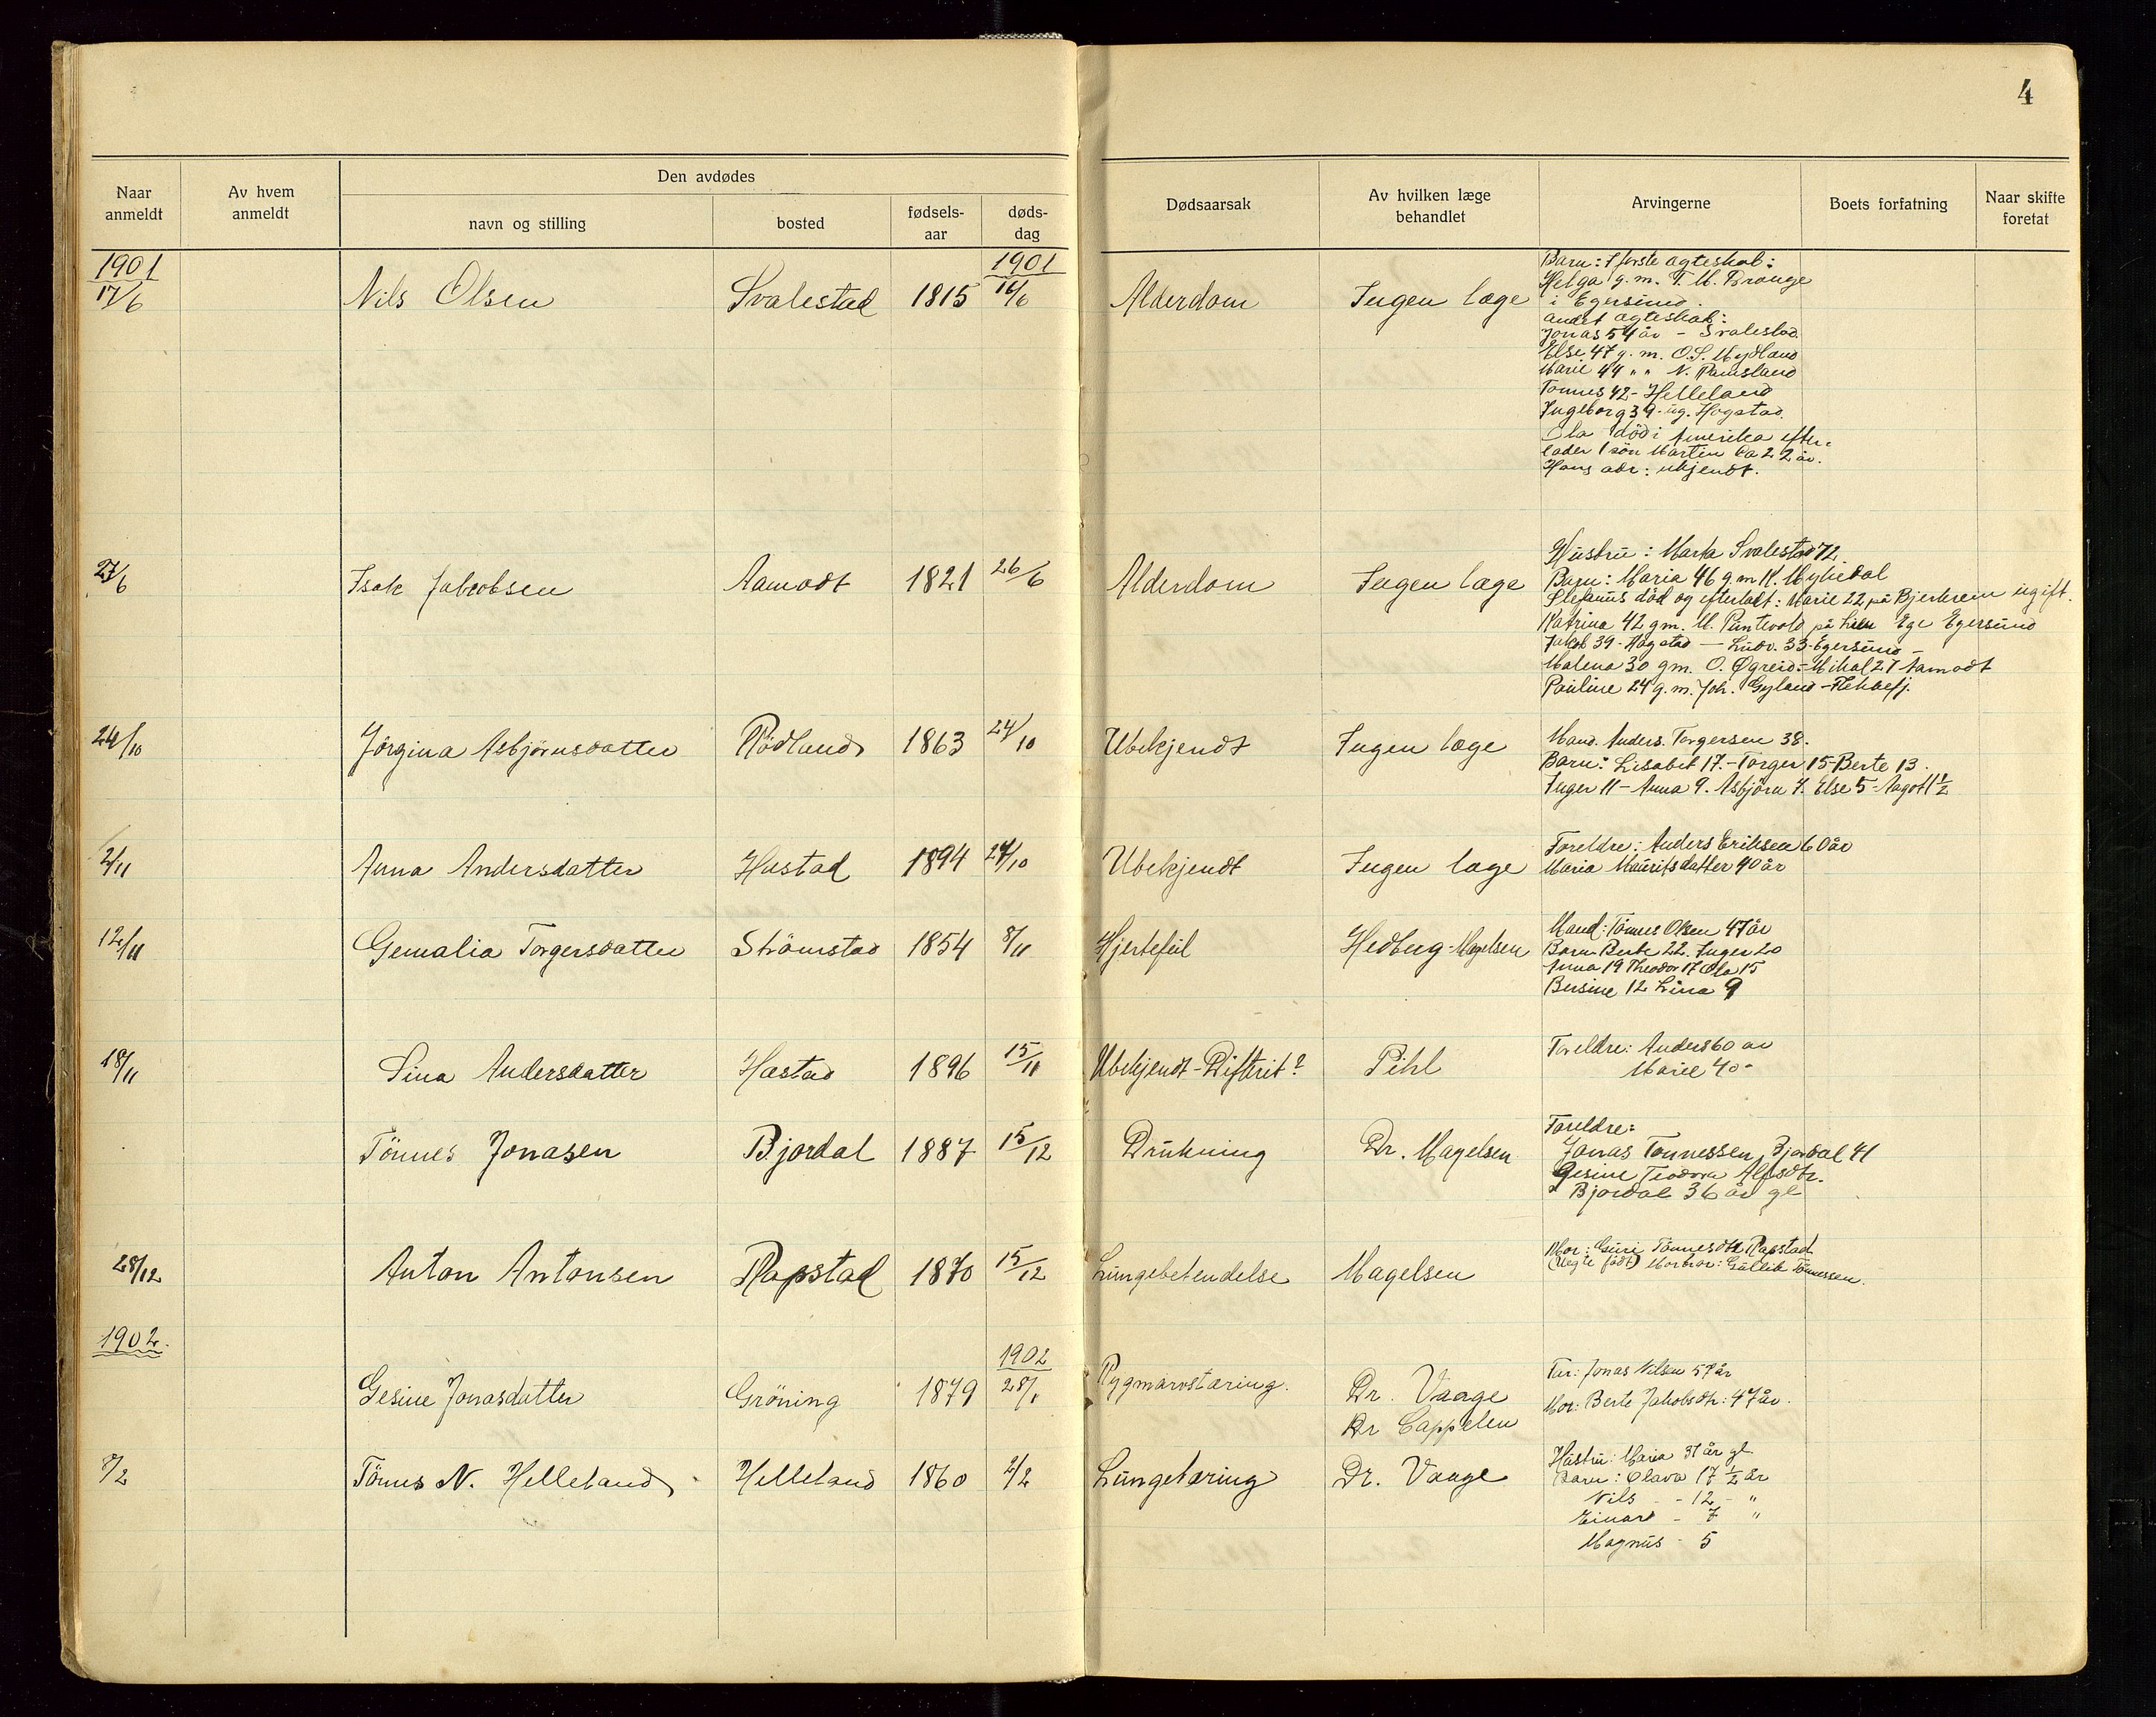 4
Naar anmeldt
Av hvem anmeldt
Den avdødes
navn og stilling
bosted
fødsels-aar
døds-dag
Dødsaarsak
Av hvilken læge behandlet
Arvingerne
Boets forfatning
Naar skifte foretat
1901 1901
17/6 Nils Olsen Svalestad 1815 14/6 Alderdom Ingen læge
Barn: I første ægteskab:
Helga g.m. T. M. Prange
i Egersund.
andet ægteskab:
Jonas 54 år - Svalestad.
Else 47 g.m. O.S. Mydland
Marie 44 " " N. Ramsland
Tønnes 42 - Helleland
Ingeborg 39 - ug. Hogstad.
Ola død i Amerika efter-
lader 1 søn Martin ca 22 år.
Hans adr: ukjendt.
27/6 Isak Jakobsen Aamodt 1821 26/6 Alderdom Ingen læge
Hustru: Marta Svalestad 72.
Barn: Maria 46 g.m K. Mybedal
Stefanus død og efterladt: Marie 22 på Bjerkrem ugift.
Katrina 42 gm. M. Puntevold på Ege Egersund
Jakob 39 - Høgstad - Ludv. 33 - Egersund -
Malena 30 gm. O. Øgreid - Mikal 27 Aamodt
Pauline 24 g.m. Joh. Gyland - Flekkefj.
24/10 Jörgina Asbjörnsdatter Rödland 1863 24/10 Ubekjendt Ingen læge
Mand. Anders. Torgersen 38.
Barn: Lisabet 17. - Torger 15 - Berte 13.
Inger 11 - Anna 9. Asbjörn 7. Else 5 - Aagot 1 1/2
2/11 Anna Andersdatter Hæstad 1894 24/10 Ubekjendt Ingen læge
Foreldre: Anders Eriksen 60 år
Maria Mauritsdatter 40 år
12/11 Gemalia Torgersdatter Strömstad 1854 8/11 Hjertefeil Hedberg - Magelsen
Mand: Tönnes Olsen 47 år
Barn Berte 22. Inger 20
Anna 19 Theodor 17 Ola 15
Bersine 12 Lina 9
18/11 Sina Andersdatter Hæstad 1896 15/11 Ubekjendt - Difterit? Pihl
Foreldre: Anders 60 år
Marie 40 -
Tönnes Jonasen Bjordal 1887 15/12 Drukning Dr. Magelsen
Foreldre:
Jonas Tønnessen Bjordal 41
Gesine Teodora Alfsdtr.
Bjordal 36 år gl
28/12 Anton Antonsen Rapstad 1870 15/12 Lungebetendelse Magelsen
Mor: Guri Tönnesdtr Rapstad
(Uegte født) Morbror: Gullik Tönnessen.
1902. 1902
Gesine Jonasdatter Gröning 1879 28/1 Rygmarvstæring. Dr. Vaage
Dr Cappelen
Far: Jonas Nilsen 57 år
Mor: Berte Jakobsdtr: 47 år.
7/2 Tönnes N. Helleland Helleland 1860 2/2 Lungetæring Dr. Vaage
Hustru: Maria 37 år gl.
Barn: Olava 17 1/2 år
Nils - - 12 - "
Einar - 7 "
Magnus - 5